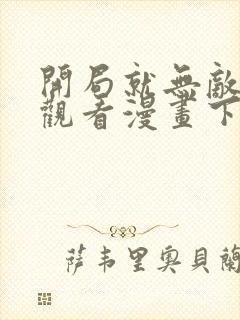 開局就無敵
觀看漫畫下
萨韦里奥貝蘭